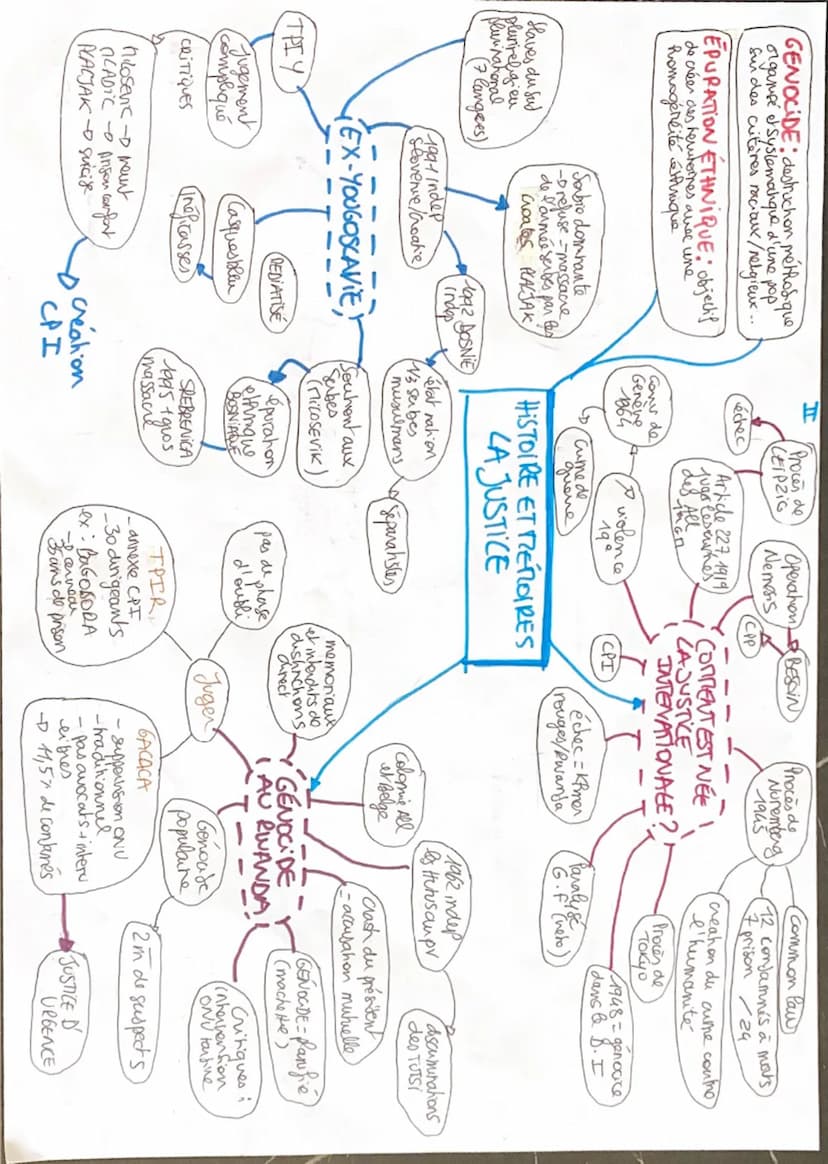 GENOCIDE : destruction méthodique
organisé et systématique d'une pop
sur des critères raciaux/religieux...
ÉPURATION ÉTHNIQUE : objectif
de créer des territoires avec une
homogénéité éthnique
HISTOIRE ET MÉMOIRES
LA JUSTICE
EX-YOUGOSLAVIE
Slaves du Sud
plurireligieu
plurinational
(7 langues)
1991 indep
slovénie/Croatie
Serbie dominante
→ refuse = massacre
de l'armée serbes par les
croates PRALJAK
1992 BOSNIE
indep
état nation
1/3 serbes
musulmans
Séparatistes
Soutient aux
Serbes
(MILOSEVIK)
épuration
éthnique
BOSNIAQUE
SREBRENICA
1995 + gros
massacre
MEDIATISÉ
Casques bleu
Inéficasses
TPIY
Jugement
compliqué
CRITIQUES
MILOSEVIC → meurt
MLADIC → prison confort
PRALJAK → suicide
création
CPI
II
COMMENT EST NÉE
LA JUSTICE
INTERNATIONALE ?
↗ violence
19e
Conv de
Genève
1864
Crime de
guerre
Article 227 1919
juge les crimes
des All
1h en
Procès de
LEIPZIG
échec
Opération
Nemesis
BERLIN
CPP
Procès de
Nuremberg
1945
Common law
12 condamnés à morts
7 prison /24
création du crime contre
l'humanité
Procès de
Tokyo
1948 = génocide
dans le D.I
Paralysé
G.F (veto)
échec = Khmer
rouges/rwanda
CPI
GÉNOCIDE
AU RWANDA
Colonie All
et belge
1962 indep
les Hutus au pv
discriminations
des TUTSI
Crash du président
= accusation mutuelle
GÉNOCIDE = planifié
(machette)
Critiques :
intervention
ONU tardive
Génocide
populaire
2M de suspects
mémoriaux
et interdits de
distinctions
direct
Juger
pas de phase
d'oubli
TPIR
- annexe CPI
- 30 dirigeants
ex : BAGOSORA
→ cerveau
35 ans de prison
GACACA
- suppression ONU
- traditionnel
- pas avocats + interv
libres
→ 11,5% de condamnés
JUSTICE D'
URGENCE